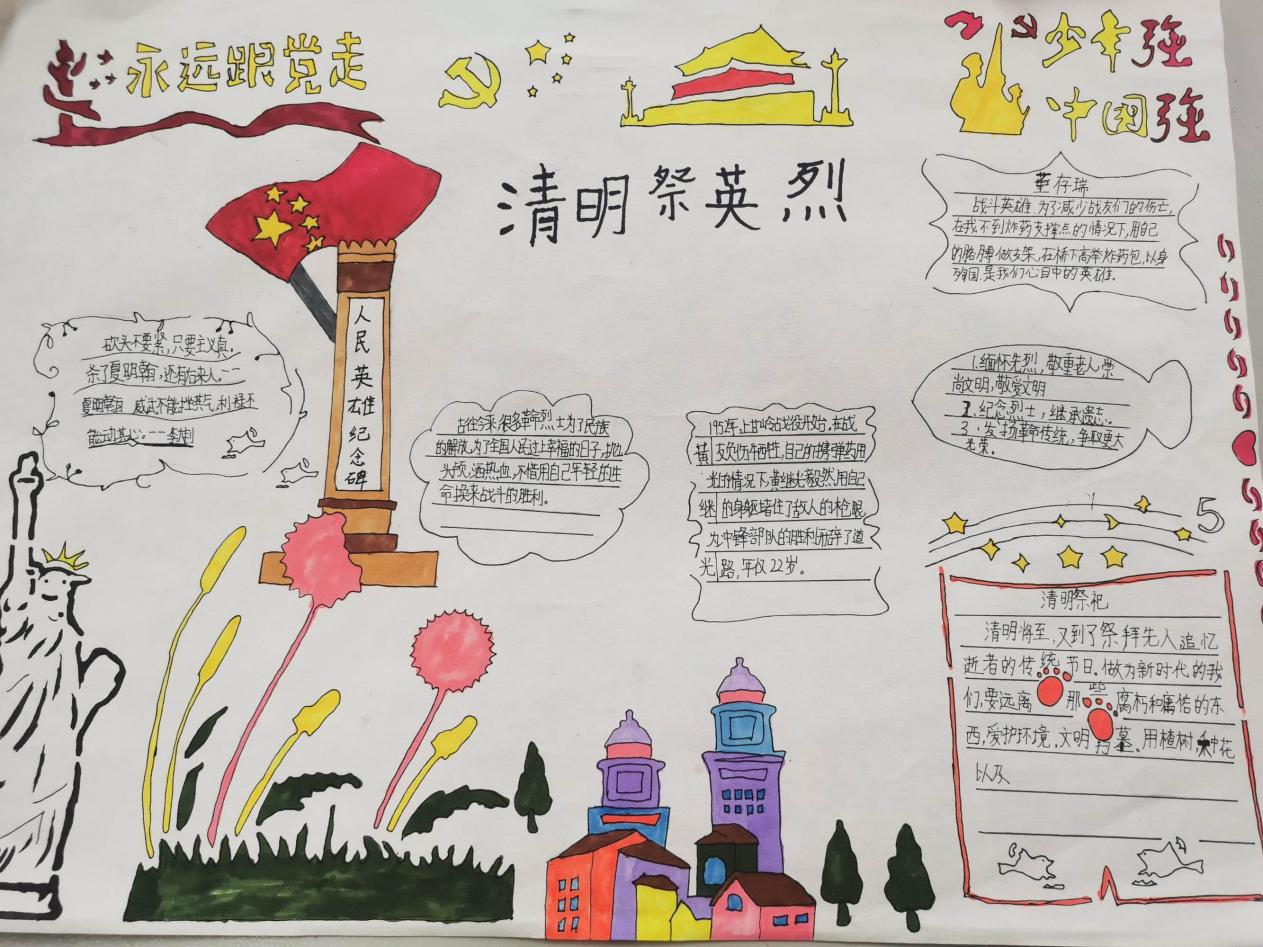 永远跟党走
少年强
中国强
清明祭英烈
董存瑞
战斗英雄,为了减少战友们的伤亡,
在找不到炸药支撑点的情况下,用自己
的胳膊做支架,在桥下高举炸药包,以身
殉国.是我们心目中的英雄.
人民英雄纪念碑
砍头不要紧,只要主义真.
杀了夏明翰,还有后来人.——
夏明翰 威武不能挫其气,利禄不
能动其心.——李大钊
1.缅怀先烈,敬重老人,崇
尚文明,敬爱文明
2.纪念烈士,继承遗志.
3.发扬革命传统,争取更大
光荣。
古往今来,很多革命烈士为了民族
的解放,为了全国人民过上幸福的日子,抛
头颅,洒热血,不惜用自己年轻的生
命换来战斗的胜利。
1952年上甘岭战役开始,在战
黄 友负伤牺牲,自己的携弹药用
光的情况下,黄继光毅然用自己
继 的身躯堵住了敌人的枪眼
为冲锋部队的胜利开辟了道
光 路,年仅22岁。
5
清明祭祀
清明将至,又到了祭拜先人追忆
逝者的传统节日。做为新时代的我
们,要远离那些腐朽和庸俗的东
西,爱护环境,文明扫墓。用植树种花
以及